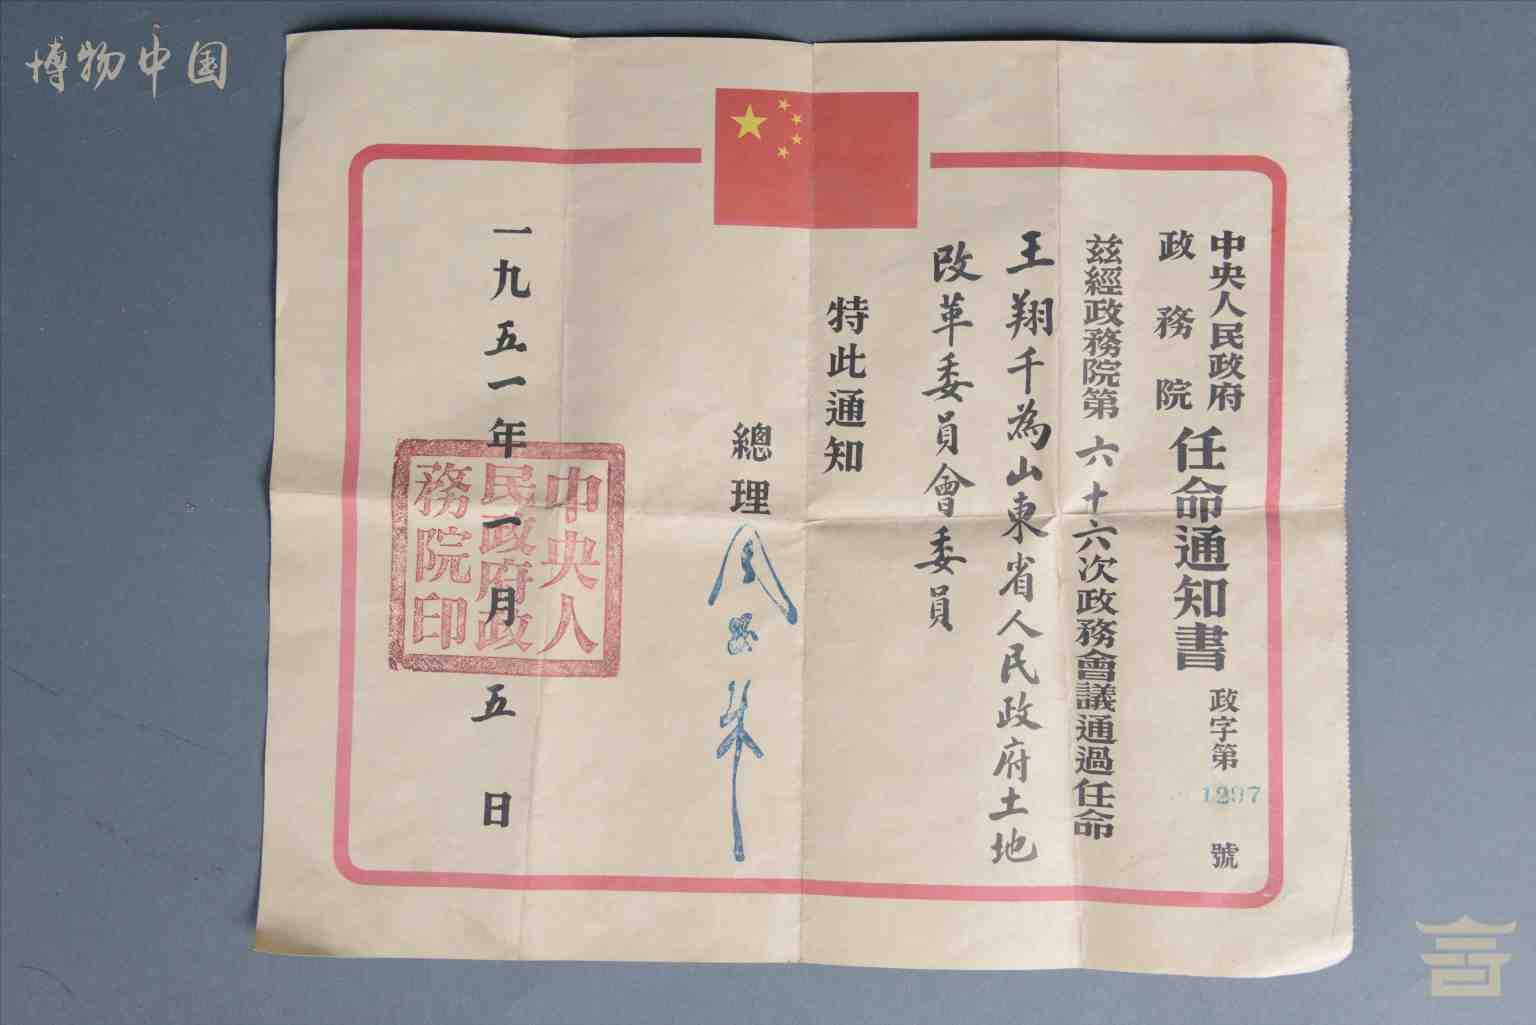 博物中国
中央人民政府
政務院
任命通知書
政字第1297號
茲經政務院第六十六次政務會議通過任命
王翔千為山東省人民政府土地
改革委員會委員
特此通知
總理周恩來
一九五一年一月五日
中央人
民政府政
務院印